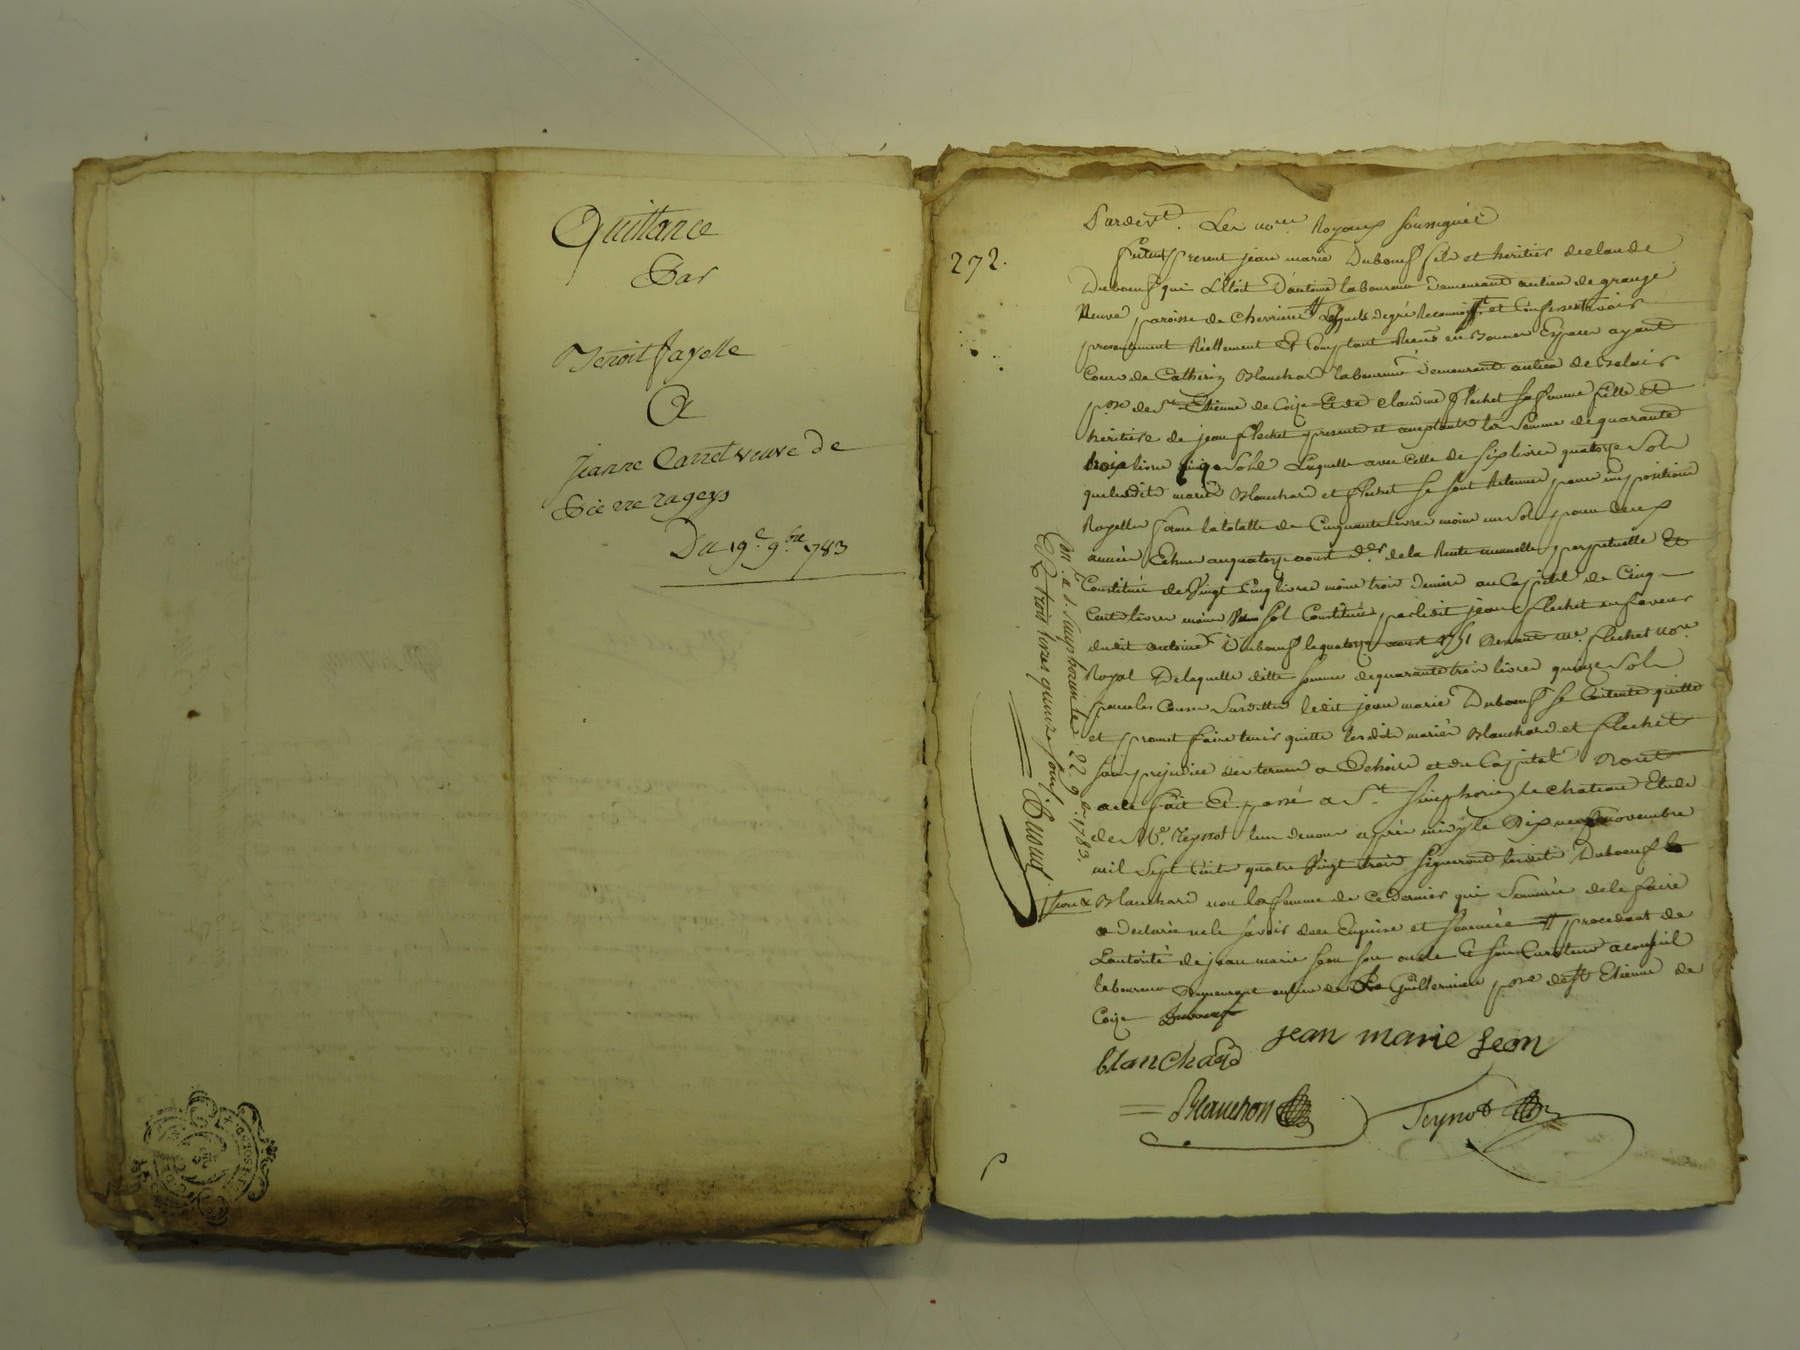 Quittance
Par
Benoit fayolle
A
Jeanne Carret veuve de
Pierre rageys
Du 19e 9bre 1783
272.
Pardevt. Les nores. Royaux soussignés
futent present jean marie Duboeuf fils et heritier de claude
Duboeuf qui L'etoit D'antoine laboureur Demeurant au lieu de grange
Neuve paroisse de Chevrieres lesquels degré Reconnoist et Confesse avoir
presentement Réellement Et Comptant Receu en Bonnes Especes ayant
Cours de Catherin Blanchard laboureur Demeurant au lieu de
psse de St Etienne de Coize Et de claudine flechet sa femme fille et
heritiere de jean flechet present et acceptants la Somme de quarante
trois livres Sols Laquelle avec Celle de six livres quatorze Sols
que lesdits mariés Blanchard et flechet se sont Retenues pour impositions
Royalles forme la totalle de Cinquante livres moins un Sol pour deux
années Echues au quatorze aoust der. de la Rente annuelle perpetuelle Et
Constituée de Vingt Cinq livres moins trois Deniers au Capital de Cinq
Cents livres moins Sol Constituée par ledit jean flechet en faveur
dudit antoine Duboeuf le quatorze aoust 1751 Devant me. flechet nore.
Royal De laquelle ditte somme de quarante trois livres quinze Sols
pour les Causes Susdittes ledit jean marie Duboeuf se Contente quitte
et promet faire tenir quitte lesdits mariés Blanchard et flechet
sans prejudice des termes a Echoire et du Capital Dont
acte fait Et passé a St. Simphorien le chateau Etude
de Me. Teynot l'un denous après midy le Dix neuf novembre
mil Sept Cents quatre Vingt trois signeront lesdits Duboeuf
Blanchard non la femme de Ce Dernier qui Sommée de le faire
a Declaré ne le sávoir de ce Enquise et sommée procedant de
L'autorité de jean marie Seon son oncle Et son Curateur a conseil
laboureur Demeurant au lieu de Guillermieu psse de st Etienne de
Coize Duboeuf
jean marie seon
blanchard
Blanchon
Teynot
Con. a s. simphorien le 22. 9b. 1783.
R. trois livres quinze sous.